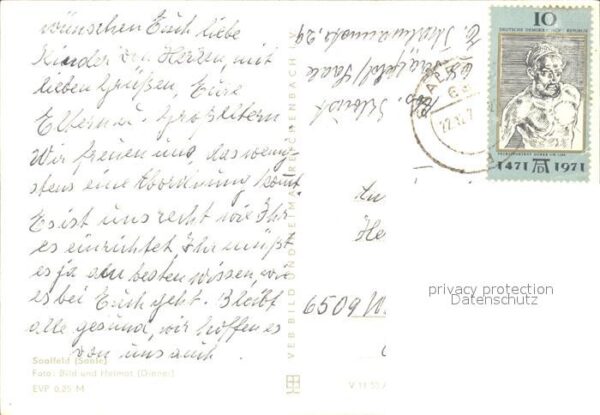 wünschen Euch liebe
Kinder von Herzen mit
lieben Grüßen, Eure
Eltern u. Großeltern
Wir freuen uns, das wenig-
stens eine Abordnung komt.
Es ist uns recht wie Ihr
es einrichtet Ihr müßt
es ja am besten wissen, wie
es bei Euch geht. Bleibt
alle gesund, wir hoffen es
von uns auch.
Saalfeld (Saale)
Foto: Bild und Heimat
EVP 0,25 M
VEB BILD UND HEIMAT REICHENBACH V
V 11 50
Saalfeld/Saale
10
DEUTSCHE DEMOKRATISCHE REPUBLIK
1471 AD 1971
22.12.7
6509 W
privacy protection
Datenschutz